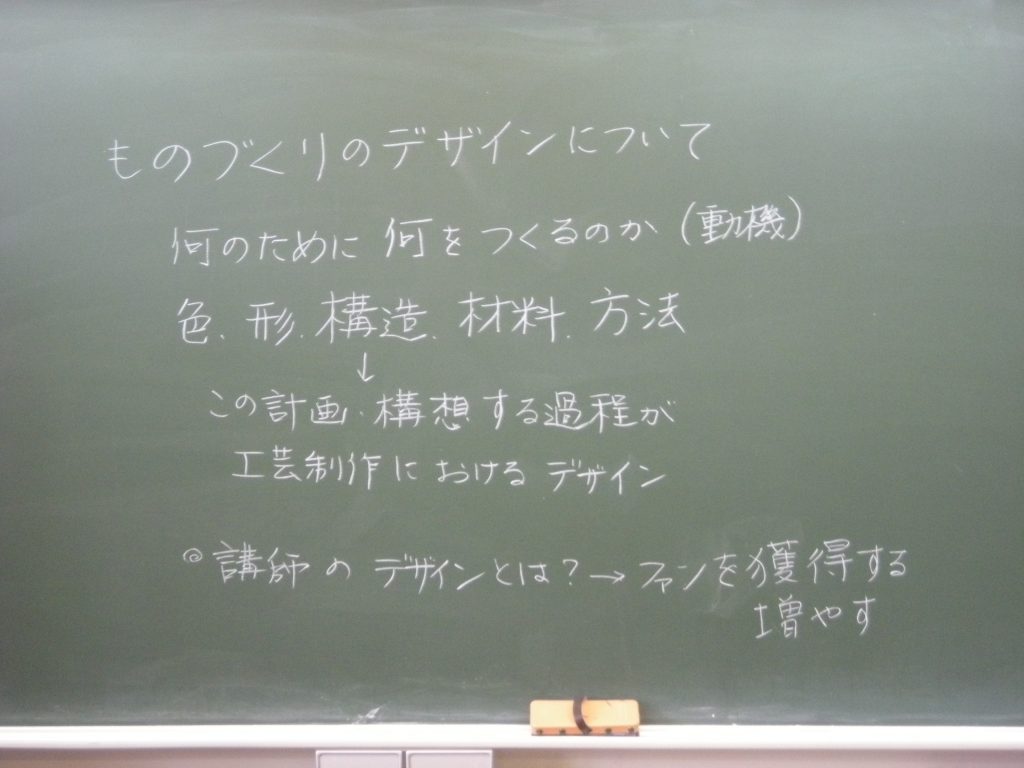 ものづくりのデザインについて
何のために 何をつくるのか(動機)
色.形.構造.材料.方法
↓
この計画.構想する過程が
工芸制作における デザイン
◎講師の デザインとは?→ファンを獲得する
増やす